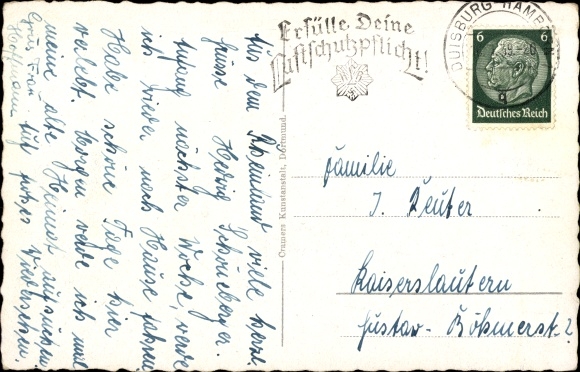 Aus dem Rheinland viele herzl.
Grüsse Hedwig Schneeberger.
Anfang nächster Woche, werde
ich wieder nach Hause fahren
Habe schöne Tage hier
verlebt. Morgen werde ich mal
meine alte Heimat aufsuchen.
Gruss Frau
Hoffmann
Auf gutes Wiedersehen.
Cramers Kunstanstalt, Dortmund.
Erfülle Deine
Luftschutzpflicht!
DUISBURG-HAMB
6 6
Deutsches Reich
Familie
J. Reuter
Kaiserslautern
Gustav- Böhmerstr. 2